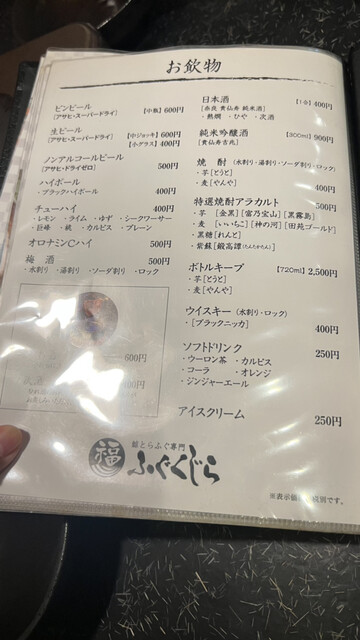 お飲物
ビンビール 【中瓶】 600円
[アサヒ・スーパードライ]
生ビール 【中ジョッキ】 600円
[アサヒ・スーパードライ] 【小グラス】 400円
ノンアルコールビール 500円
[アサヒ・ドライゼロ]
ハイボール
・ブラックハイボール 400円
チューハイ 400円
・レモン ・ライム ・ゆず ・シークワーサー
・巨峰 ・桃 ・カルピス ・プレーン
オロナミンCハイ 500円
梅酒 500円
・水割り ・湯割り ・ソーダ割り ・ロック
600円
日本酒 【1合】 400円
[奈良 貴仙寿 純米酒]
・熱燗 ・ひや ・次酒
純米吟醸酒 【300ml】 900円
[貴仙寿吉兆]
焼酎 (水割り・湯割り・ソーダ割り・ロック)
・芋[とうと]
・麦[やんや] 400円
特選焼酎アラカルト 500円
・芋 [金黒] [富乃宝山] [黒霧島]
・麦 [いいちこ] [神の河] [田苑ゴールド]
・黒糖[れんと]
・紫蘇[鍛高譚(たんたかたん)]
ボトルキープ 【720ml】 2,500円
・芋[とうと]
・麦[やんや]
ウイスキー (水割り・ロック)
・[ブラックニッカ] 400円
ソフトドリンク 250円
・ウーロン茶 ・カルピス
・コーラ ・オレンジ
・ジンジャーエール
アイスクリーム 250円
鯨とらふぐ専門
福 ふくくじら
※表示価格は税別です。